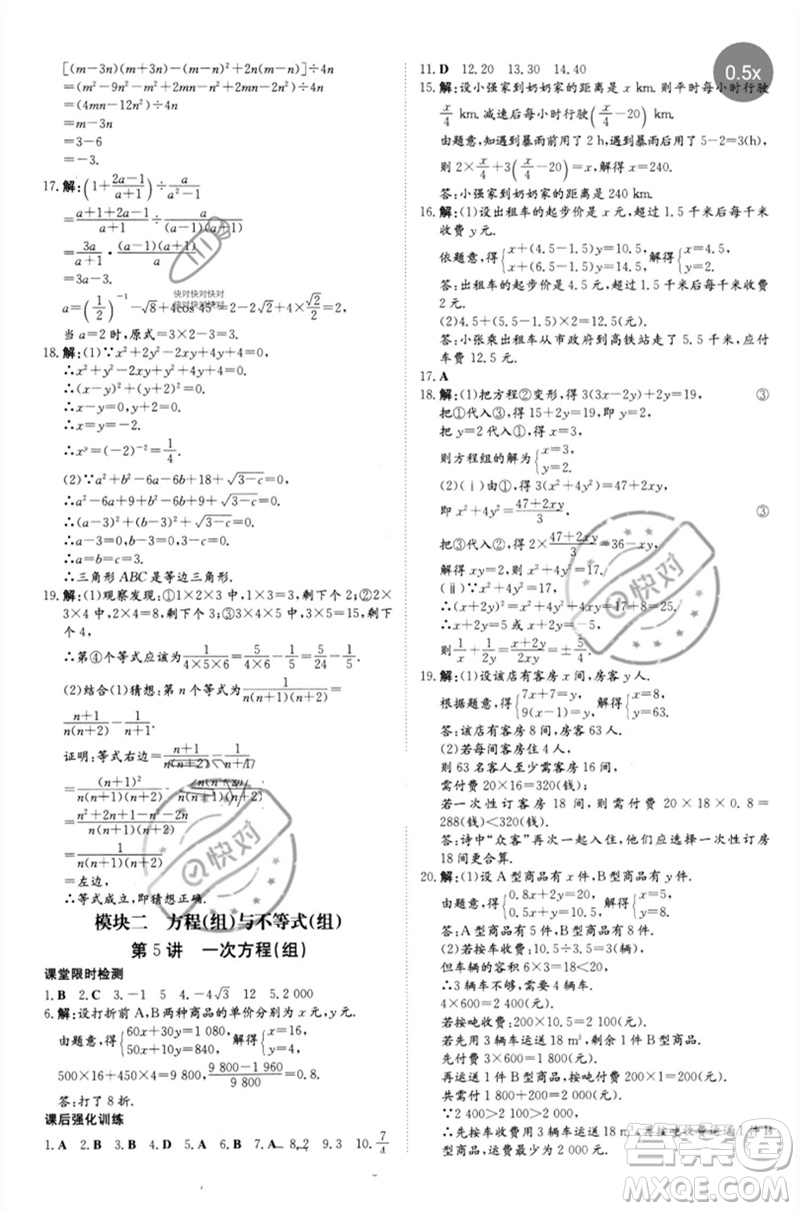 [(m-3n)(m+3n)-(m-n)²+2n(m-n)]÷4n
=(m²-9n²-m²+2mn-n²+2mn-2n²)÷4n
=(4mn-12n²)÷4n
=m-3n
=3-6
=-3.
17.解:(1+(2a-1)/(a+1))÷a/(a²-1)
=(a+1+2a-1)/(a+1)÷a/((a+1)(a-1))
=3a/(a+1)·(a+1)(a-1)/a
=3a-3.
a=(1/2)⁻¹-√8+4cos 45°=2-2√2+4×√2/2=2,
当 a=2 时,原式=3×2-3=3.
18.解:(1)∵x²+2y²-2xy+4y+4=0,
∴x²-2xy+y²+y²+4y+4=0,
∴(x-y)²+(y+2)²=0,
∴x=y=-2,
∴xʸ=(-2)⁻²=1/4.
(2)∵a²+b²-6a-6b+18+√(3-c)=0,
∴a²-6a+9+b²-6b+9+√(3-c)=0,
∴(a-3)²+(b-3)²+√(3-c)=0,
∴a=b=c=3.
∴三角形 ABC 是等边三角形.
19.解:(1)观察发现:①1×2×3 中,1×3=3;②2
×3×4 中,2×4=8,所以可得:③3×4×5=15/60,
∴第④个等式应该为5/(4×5×6)=5/4-6/5=5/24
(2)结合(1)猜想:第 n 个等式为1/(n(n+1)(n+2))=
(n+1)/n-1/(n+1).
证明:等式右边=(n+1)/n-1/(n+1)
=(n+1)²/(n(n+1))-n(n+2)/(n(n+1))
=1/(n(n+1))
=左边.
∴等式成立,即猜想正确.
模块二 方程(组)与不等式(组)
第 5 讲 一次方程(组)
课堂限时检测
1.B 2.C 3.-1 5 4.-4√3 5.2 000
6.解:设打折前 A,B 两种商品的单价分别为 x 元,y 元.
由题意,得{60x+30y=1 080, 50x+10y=840, 解得{x=16, y=4.
500×16+450×4=9 800,(9 800-1 960)/9 800=0.8.
答:打了 8 折.
课后强化训练
1.A 2.B 3.D 4.B 5.B 6.D 7.A 8.2 9.3 10.7/4
11.D 12.20 13.30 14.40
15.解:设小强家到奶奶家的距离是 x km.则平时每小时行驶
x/4 km.减速后每小时行驶(x/4-20)km.
由题意可知,遇到暴雨前用了 2 h,遇到暴雨后用了 5-2=3(h),
则 2×x/4+3(x/4-20)=x,解得 x=240.
答:小强家到奶奶家的距离是 240 km.
16.解:(1)设出租车的起步价是 x 元,超过 1.5 千米后每千米
收费 y 元.
依题意,得{x+(4.5-1.5)y=10.5, x+(6.5-1.5)y=14.5, 解得{x=4.5, y=2.
答:出租车的起步价是 4.5 元,超过 1.5 千米后每千米收费
2 元.
(2)4.5+(5.5-1.5)×2=12.5(元).
答:小张乘出租车从市政府到高铁站走了 5.5 千米,应付
车费 12.5 元.
17.A
18.解:(1)把方程②变形,得 3(3x-2y)+2y=19, ③
把①代入③,得 15+2y=19,即 y=2,
把 y=2 代入①,得 x=3,
则方程组的解为{x=3, y=2.
(2)(ⅰ)由①,得 3(x²+4y²)=47+2xy,
即 x²+4y²=(47+2xy)/3. ③
把③代入②,得 2×(47+2xy)/3=36-xy,
解得 xy=2,则 x²+4y²=17.
(ⅱ)∵x²+4y²=17,
∴(x+2y)²=x²+4y²+4xy=17+8=25,
∴x+2y=5 或 x+2y=-5,
则1/x+1/y=(x+2y)/2xy=±5/4.
19.解:(1)设该店有客房 x 间,房客 y 人.
根据题意,得{7x+7=y, 9(x-1)=y, 解得{x=8, y=63.
答:该店有客房 8 间,房客 63 人.
(2)若每间客房住 4 人,
则 63 名客人至少需客房 16 间,
需付费 20×16=320(钱);
若一次性订客房 18 间,则需付费 20×18×0.8=
288(钱)<320(钱).
答:诗中“众客”再次一起入住,他们应选择一次性订房
18 间更合算.
20.解:(1)设 A 型商品有 x 件,B 型商品有 y 件.
由题意可得{0.8x+2y=20, 0.5x+y=10.5, 解得{x=5, y=8.
答:A 型商品有 5 件,B 型商品有 8 件.
(2)①若按车收费:10.5÷3.5=3(辆),
但车辆的容积 6×3=18<20,
∴3 辆车不够,需要 4 辆车.
4×600=2 400(元).
若按吨收费:200×10.5=2 100(元).
若先用 3 辆车运送 18 m³,剩余 1 件 B 型商品,
先付费 3×600=1 800(元).
再运送 1 件 B 型商品,按吨付费 200×1=200(元).
共需付费 1 800+200=2 000(元).
∵2 400>2 100>2 000,
∴先按车收费用 3 辆车运送 18 m³,再按吨收费运送 1 件 B
型商品,运费最少为 2 000 元.
0.5x
快对
快对
答案圈
MXQE.COM